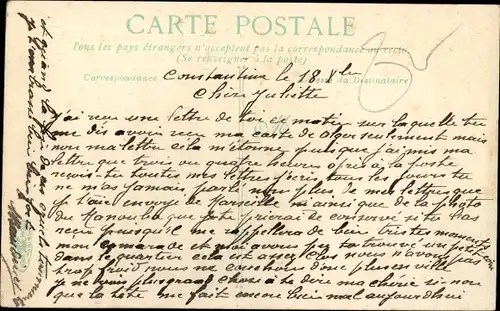 CARTE POSTALE
Tous les pays étrangers n'acceptent pas la correspondance au recto
(Se renseigner à la poste)
Correspondance du Destinataire
Constantine le 18
Chère Juliette
j'ai reçu une lettre de toi ce matin sur laquelle tu
me dis avoir reçu ma carte de alger seulement mais
non ma lettre cela m'étonne puisque j'ai mis ma
lettre que trois ou quatre heures après à la poste
reçois-tu toutes mes lettres j'écris tous les jours tu
ne m'as jamais parlé non plus de mes lettres que
je t'aie envoyé de Marseille ni ainsi que de la
Manouba que je te prierai de conservé si tu las
reçus puisqu'il me rappellera de bien tristes moments
mon camarade et moi avons pu trouvé un petit coin
dans le quartier cela est assez nous n'avons pas
trop froid nous ne couchons donc plus en ville
je ne vois plus grand chose à te dire ma chérie si non
que la tête me fait encore bien mal aujourd'hui